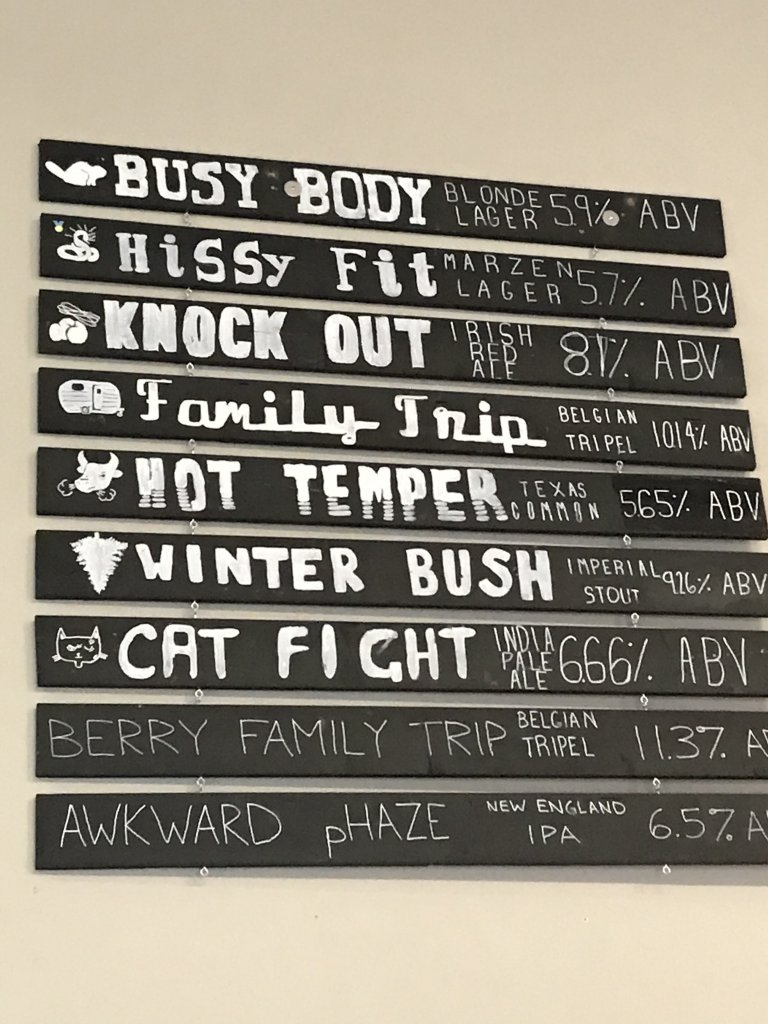 BUSY BODY BLONDE LAGER 5.9% ABV
HiSSy Fit MARZEN LAGER 5.7% ABV
KNOCK OUT IRISH RED ALE 8.1% ABV
Family Trip BELGIAN TRIPEL 10.14% ABV
HOT TEMPER TEXAS COMMON 5.65% ABV
WINTER BUSH IMPERIAL STOUT 9.26% ABV
CAT FIGHT INDIA PALE ALE 6.66% ABV
BERRY FAMILY TRIP BELGIAN TRIPEL 11.37% A
AWKWARD pHAZE NEW ENGLAND IPA 6.5% A